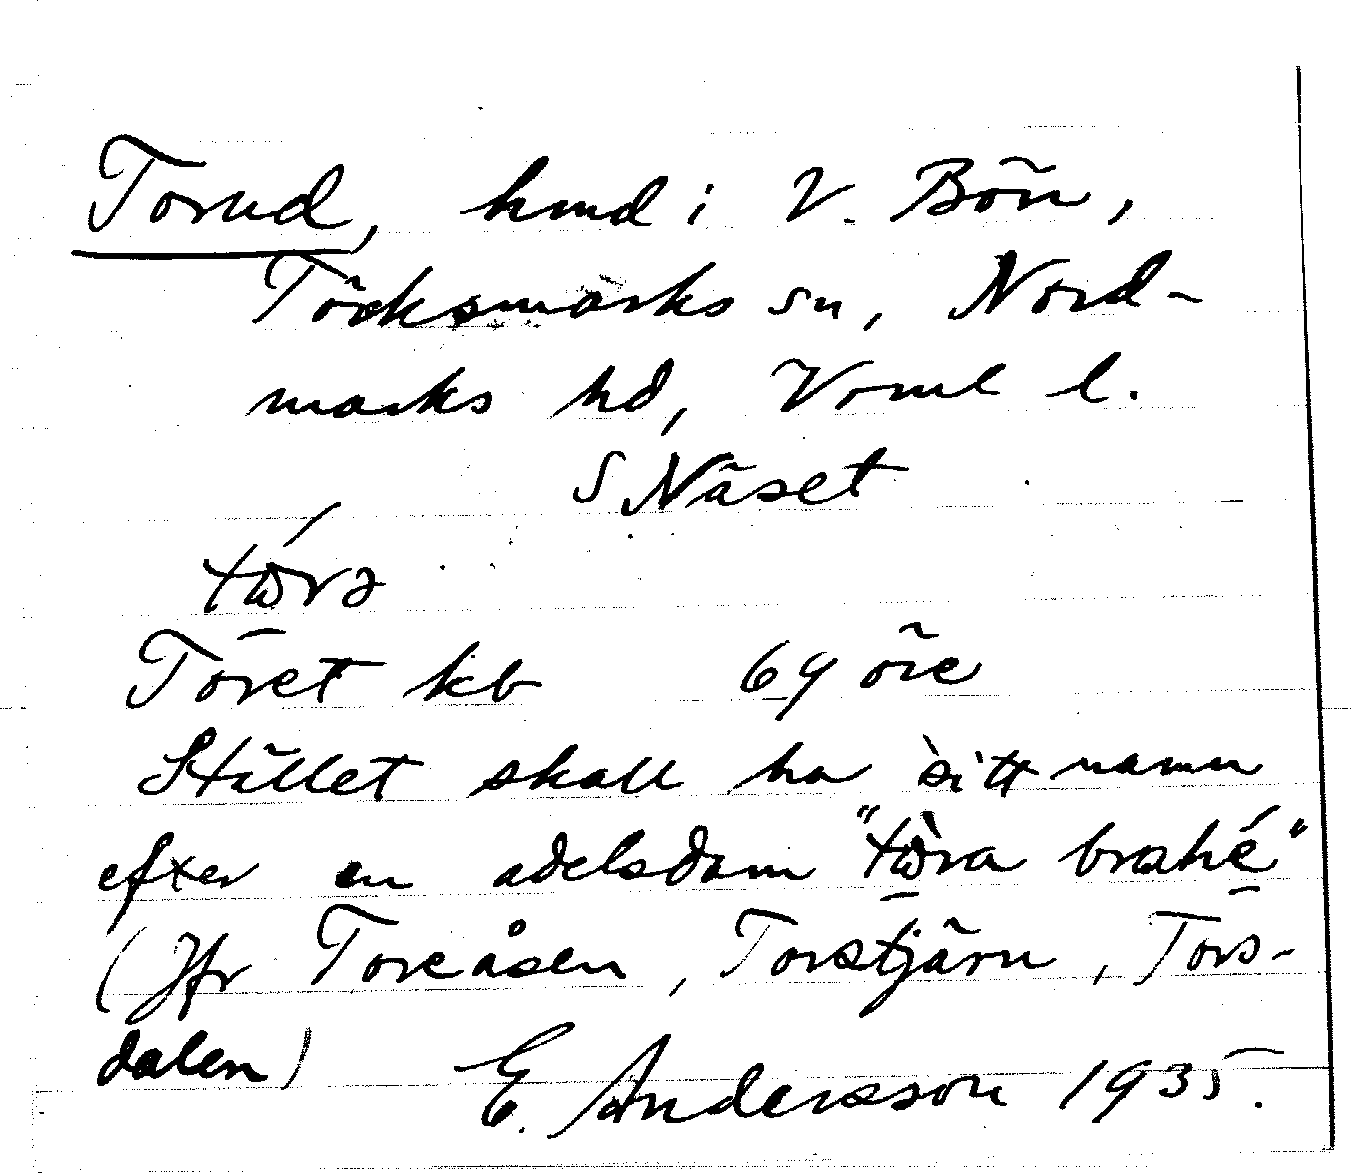 Torud, hmd i V. Bön,
Töcksmarks sn, Nord-
marks hd, Värml l.
S Näset
tɷ́rə
Töret kb 69 öre
Stället skall ha sitt namn
efter en adelsdam "tɷ̀ra brahé"
(Jfr Toreåsen, Torstjärn, Tors-
dalen)
E. Andersson 1935.